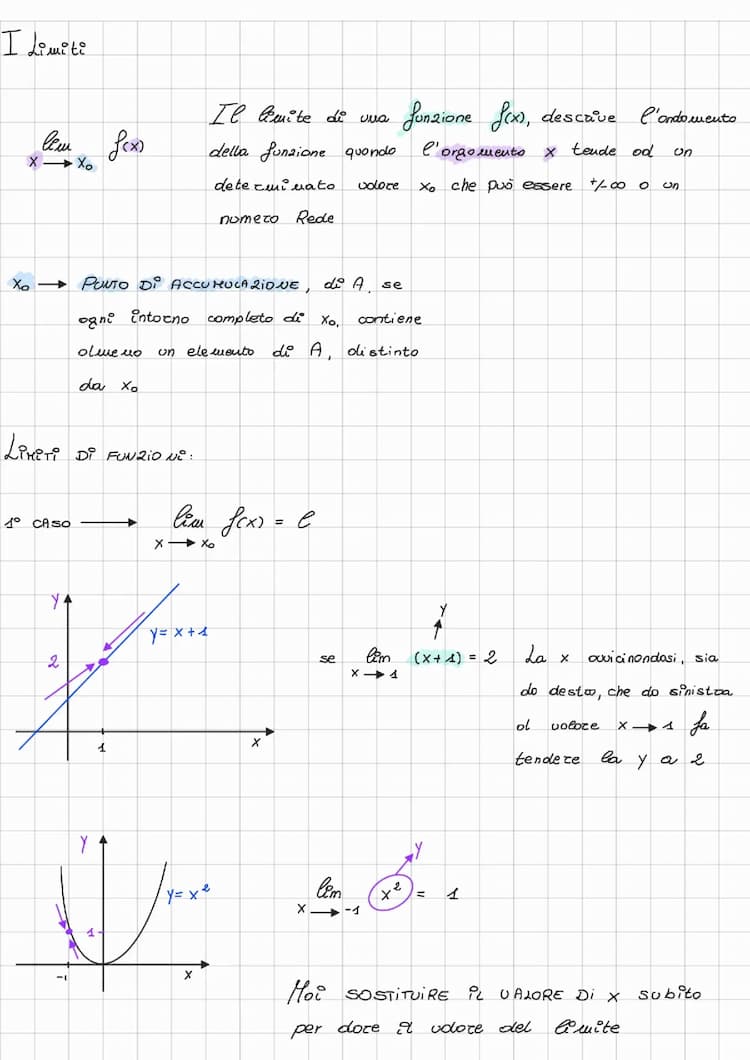 I Limiti
lim f(x)
x → x₀
Il limite di una funzione f(x), descrive l'andamento
della funzione quando l'argomento x tende ad un
determinato valore x₀ che può essere +/-∞ o un
numero Reale
x₀ → PUNTO DI ACCUMULAZIONE, di A, se
ogni intorno completo di x₀, contiene
almeno un elemento di A, distinto
da x₀
LIMITI DI FUNZIONI:
1° CASO → lim f(x) = l
x → x₀
y
y = x+1
2
1
x
y
se lim (x+1) = 2
x → 1
La x avvicinandosi, sia
da destra, che da sinistra
al valore x → 1 fa
tendere la y a 2
y
y = x²
1
-1
x
y
lim x² = 1
x → -1
Mai SOSTITUIRE IL VALORE DI x subito
per dare il valore del limite